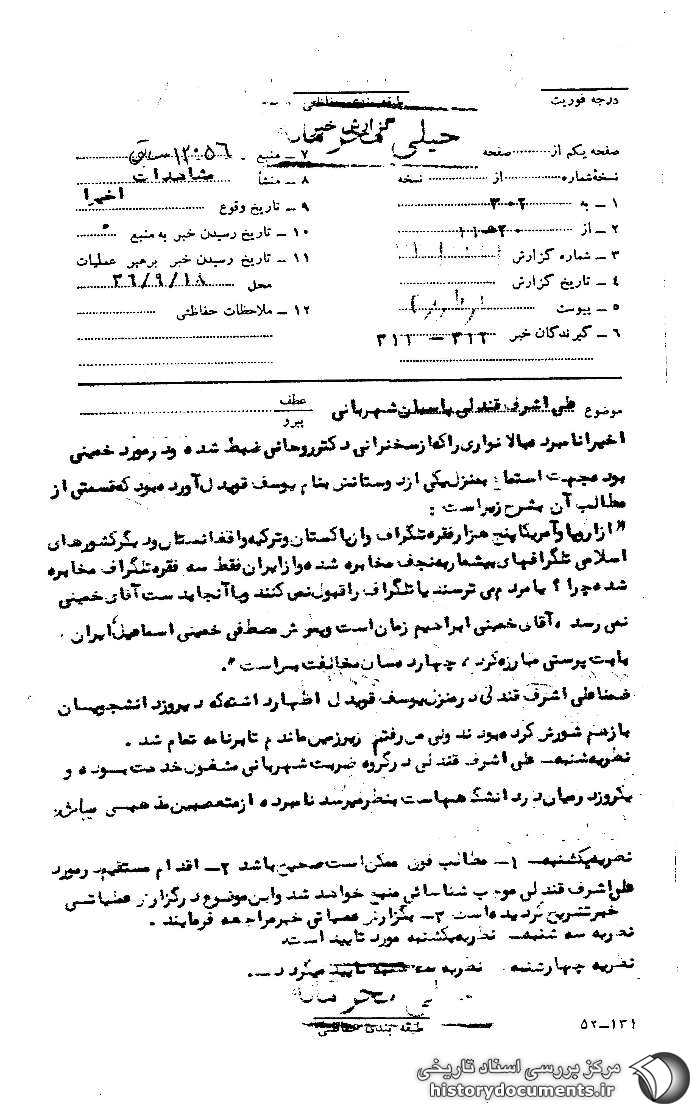 درجه فوریت
طبقه بندی حفاظتی
گزارش خبر
خیلی محرمانه
صفحه یکم از صفحه
نسخهٔ شماره از نسخه
۱ – به ۳۰۲
۲ – از
۳ – شماره گزارش
۴ – تاریخ گزارش
۵ – پیوست
۶ – گیرندگان خبر ۳۱۲ – ۳۱۱
۷ – منبع ۱۲۰۵۶
۸ – منشأ مشاهدات
۹ – تاریخ وقوع اخیرا
۱۰ – تاریخ رسیدن خبر به منبع
۱۱ – تاریخ رسیدن خبر برهبر عملیات
محل ۳۶/۹/۱۸
۱۲ – ملاحظات حفاظتی
موضوع علی اشرف قندلی پاسبان شهربانی
عطف
پیرو
اخیرا نامبرده بالا نواری را که از سخنرانی دکتر روحانی ضبط شده و در مورد خمینی
بود بجهت استماع بمنزل یکی از دوستانش بنام یوسف قویدل آورده بود که قسمتی از
مطالب آن بشرح زیر است :
" از اروپا و آمریکا پنج هزار فقره تلگراف و از پاکستان و ترکیه و افغانستان و دیگر کشورهای
اسلامی تلگرافهای بیشمار به نجف مخابره شده و از ایران فقط سه فقره تلگراف مخابره
شده چرا ؟ یا مردم می ترسند یا تلگراف را قبول نمی کنند و یا آنجا بدست آقای خمینی
نمی رسد ، آقای خمینی ابراهیم زمان است و پسرش مصطفی خمینی اسماعیل ایران .
باید با بت پرستی مبارزه کرد ، چهارده سال مخالفت بس است ".
ضمنا علی اشرف قندلی در منزل یوسف قویدل اظهار داشته که دیروز دانشجویان
باز هم شورش کرده بودند ولی من رفتم زیرزمین ماندم تا برنامه تمام شد .
نظریه شنبه – علی اشرف قندلی در گروه ضربت شهربانی مشغول خدمت بوده و
یکروز در میان در دانشگاههاست بنظر میرسد نامبرده از متعصبین مذهبی میباشد
نظریه یکشنبه – ۱– مطالب فوق ممکن است صحیح باشد ۲– اقدام مستقیم در مورد
علی اشرف قندلی موجب شناسائی منبع خواهد شد و این موضوع در گزارش عملیاتی
خبر تشریح گردیده است ۳– بگزارش عملیاتی خبر مراجعه فرمایند .
نظریه سه شنبه – نظریه یکشنبه مورد تایید است.
نظریه چهارشنبه نظریه سه شنبه تایید میگردد
خیلی محرمانه
طبقه بندی حفاظتی
۵۲–۱۳۱
مرکز بررسی اسناد تاریخی
historydocuments.ir